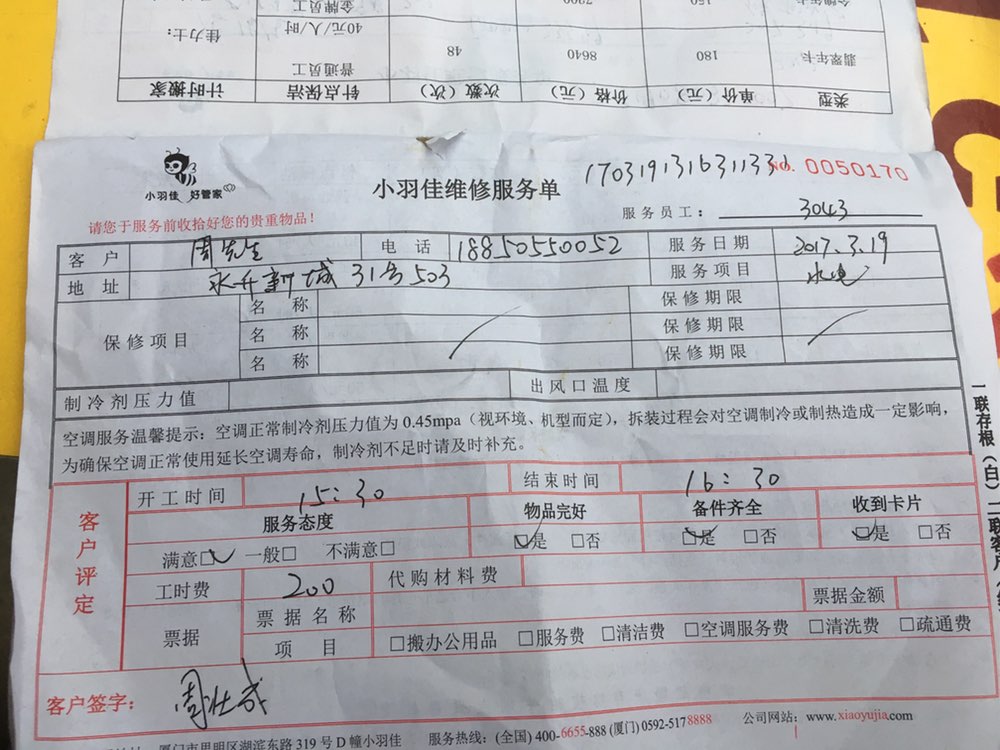 类型 单价（元） 价格（元） 次数（次） 针点保洁 计时搬家
翡翠年卡 180 8640 48 普通员工 佳力士：
40元/人/时
150 7200 金牌员工
小羽佳 好管家
小羽佳维修服务单
170319131631133
NO. 0050170
请您于服务前收拾好您的贵重物品！
服务员工： 3043
客户 周先生 电话 18850550052 服务日期 2017.3.19
地址 永升新城 31号503 服务项目 水电
保修项目 名称 保修期限
名称 保修期限
名称 保修期限
制冷剂压力值 出风口温度
空调服务温馨提示：空调正常制冷剂压力值为 0.45mpa（视环境、机型而定），拆装过程会对空调制冷或制热造成一定影响，
为确保空调正常使用延长空调寿命，制冷剂不足时请及时补充。
客户评定
开工时间 15：30 结束时间 16：30
服务态度 物品完好 备件齐全 收到卡片
满意□ 一般□ 不满意□ □是 □否 □是 □否 □是 □否
工时费 200 代购材料费
票据 票据名称 票据金额
项目 □搬办公用品 □服务费 □清洁费 □空调服务费 □清洗费 □疏通费
客户签字： 周仕成
厦门市思明区湖滨东路 319 号 D 幢小羽佳 服务热线：(全国) 400-6655-888 (厦门) 0592-5178888 公司网站：www.xiaoyujia.com
一联存根（白）二联客户